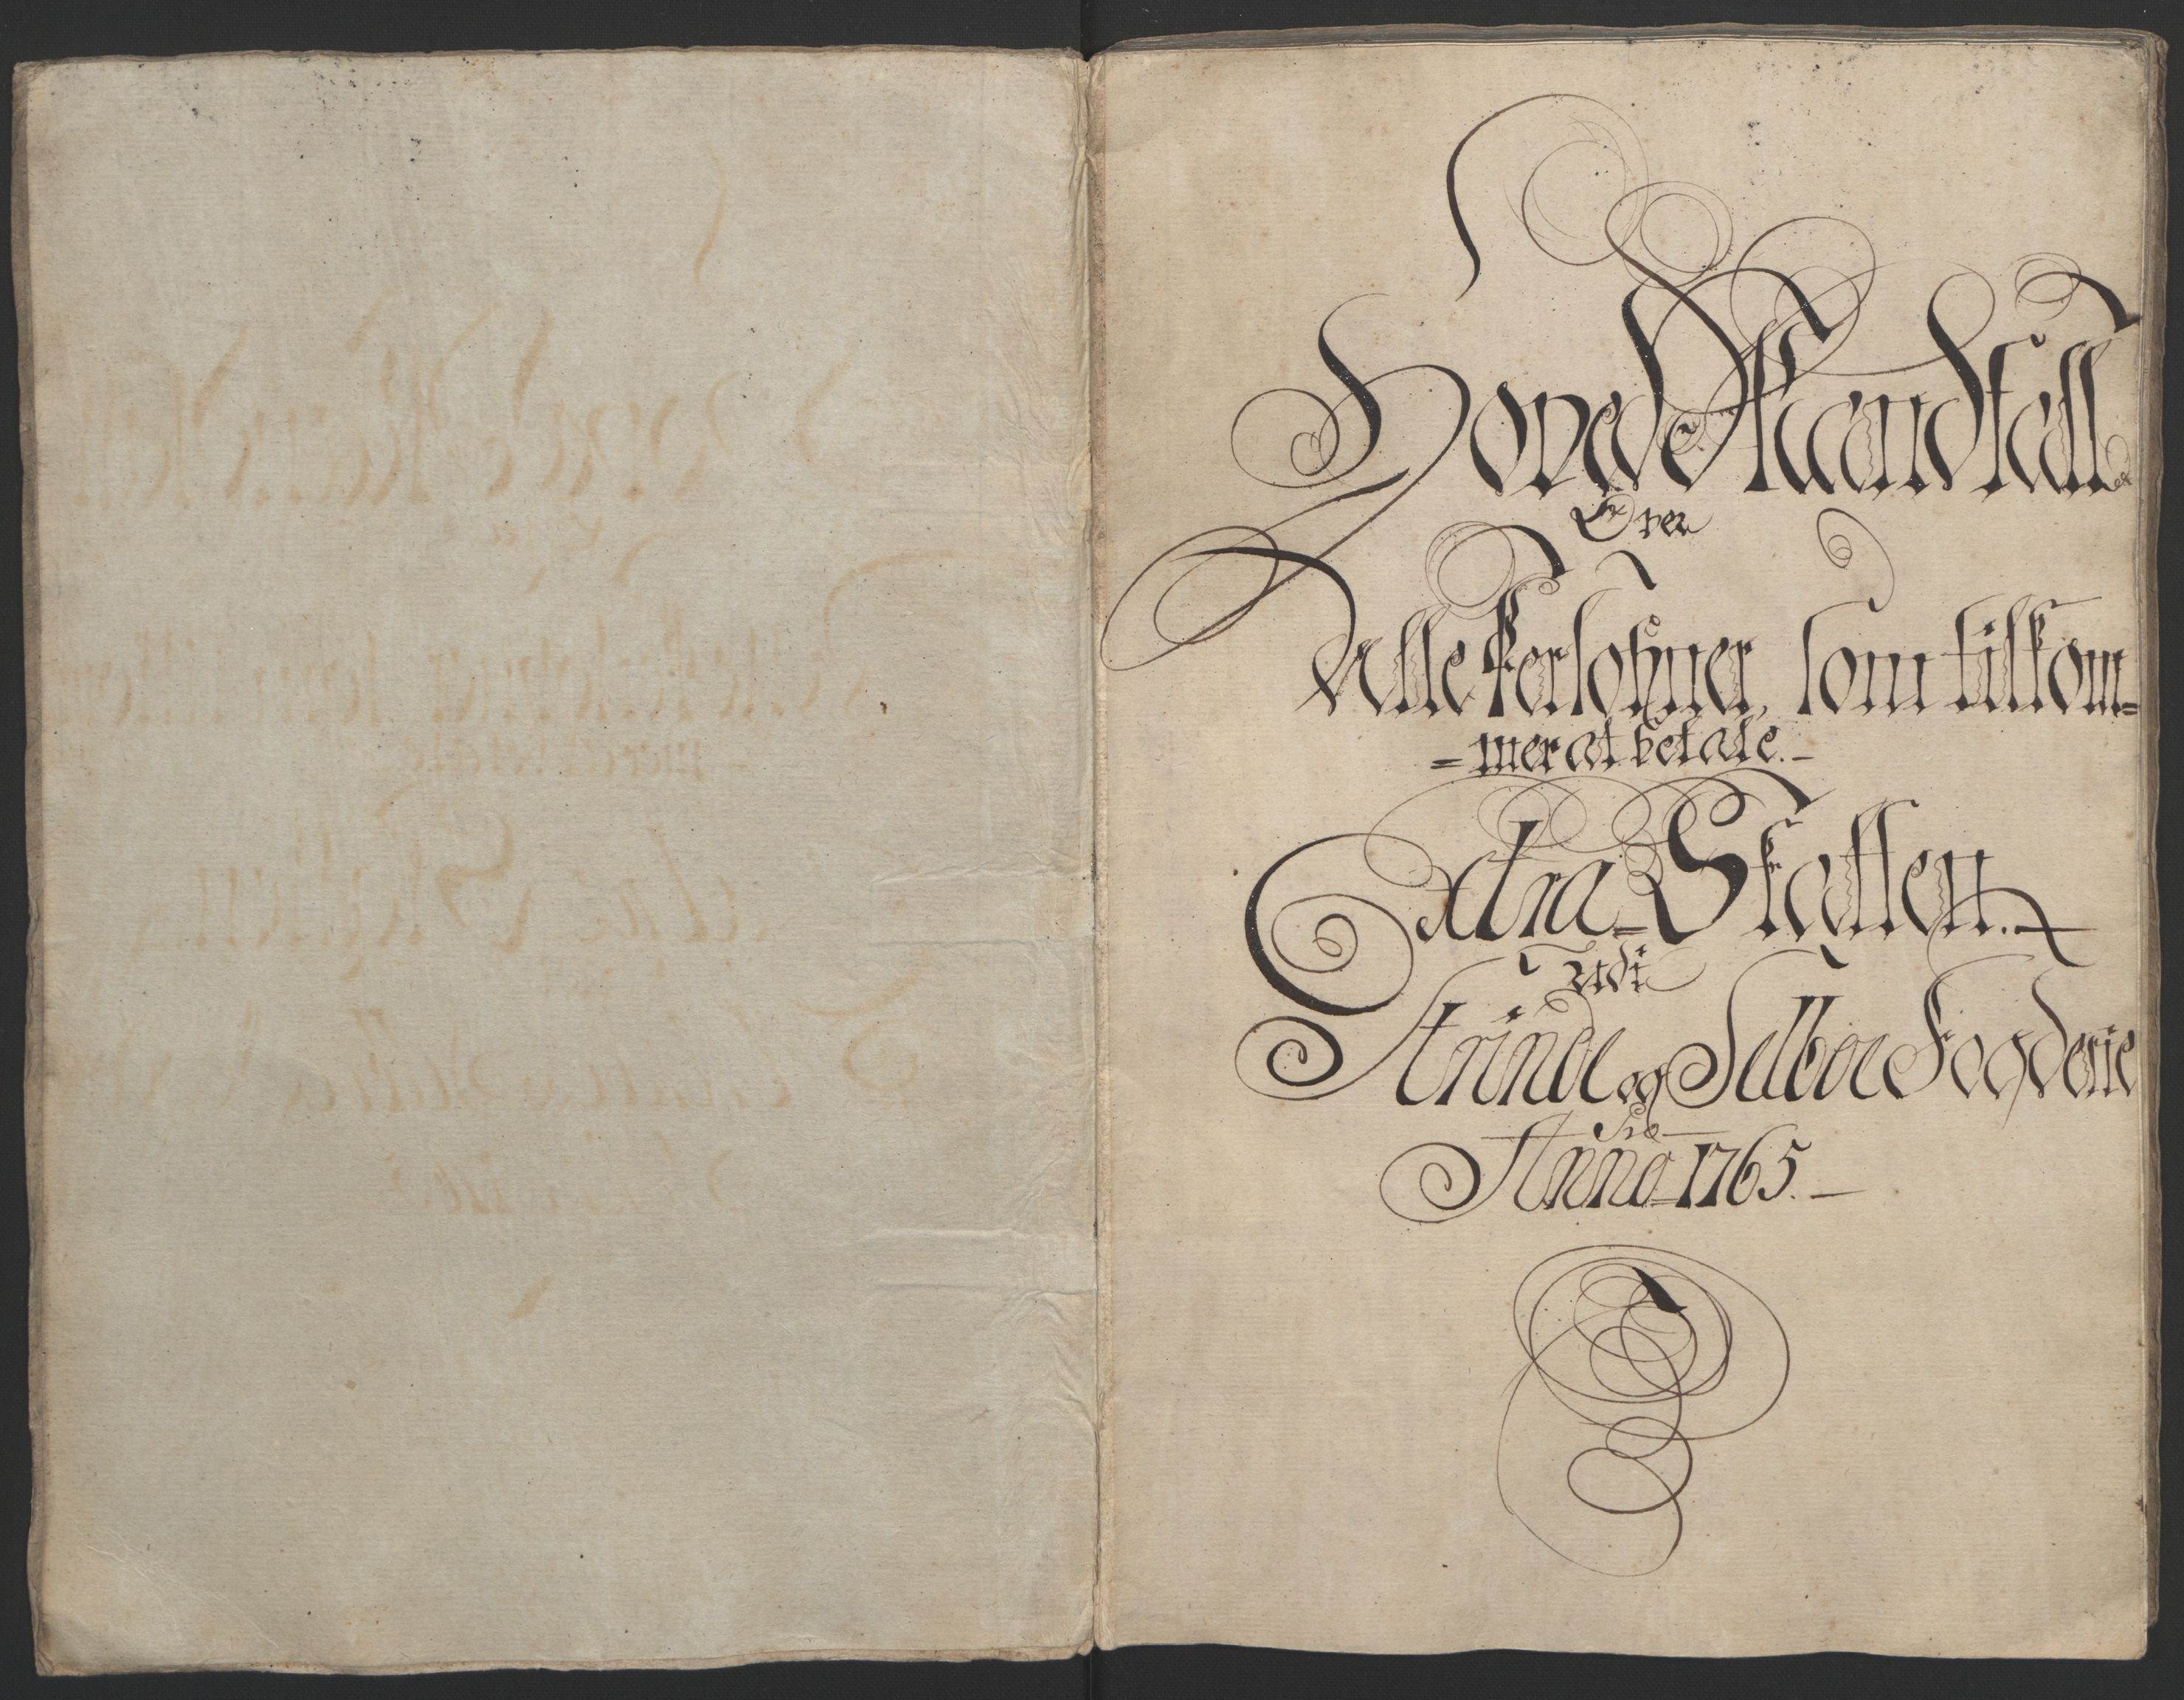 Hoved Mandtall
Over
Alle Persohner, som tilkom=
=mer at betale.
Extra=Skatten.
udi
Strinde og Selboe Fogderie
Anno 1765.